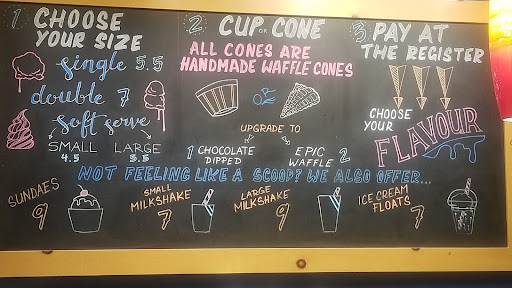 1 CHOOSE
YOUR SIZE
single 5.5
double 7
soft serve
SMALL LARGE
4.5 5.5
2 CUP OR CONE
ALL CONES ARE
HANDMADE WAFFLE CONES
or
UPGRADE TO
1 CHOCOLATE
DIPPED
EPIC
WAFFLE 2
3 PAY AT
THE REGISTER
CHOOSE
YOUR
FLAVOUR
NOT FEELING LIKE A SCOOP? WE ALSO OFFER...
SUNDAES
9
SMALL
MILKSHAKE
7
LARGE
MILKSHAKE
9
ICE CREAM
FLOATS
7